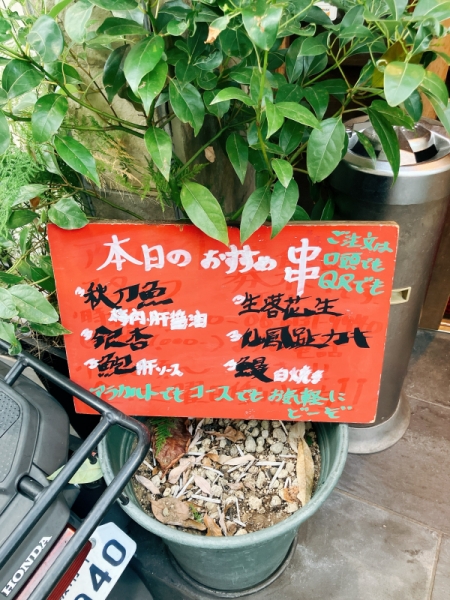 本日の おすすめ 串
ご注文は
口頭でも
QRでも
秋刀魚
梅肉・肝醤油
銀杏
鮑 肝ソース
生落花生
鰻 白焼き
アラカルトでも コースでも お気軽に
どーぞ
HONDA
40